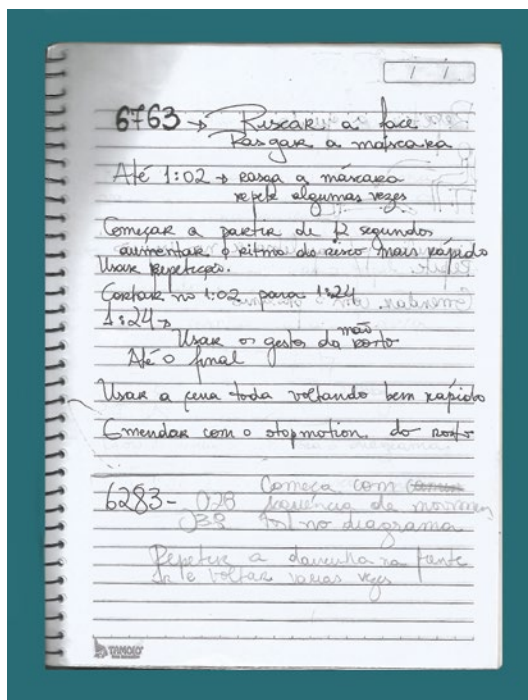 / /
6763 → Riscar a face
Rasgar a máscara
Até 1:02 → rasga a máscara
repete algumas vezes
Começar a partir de 12 segundos
aumentar o ritmo do risco mais rápido
Usar repetição.
Cortar no 1:02 para 1:24
1:24 →
mão
Usar os gestos da rosto
Até o final
Usar a cena toda voltando bem rápido
Emendar com o stopmotion do rosto
Começa com
6283 - 028 sequência de
038 no diagrama
Repetir a dancinha na fonte
voltar varias vezes
TAMOIO